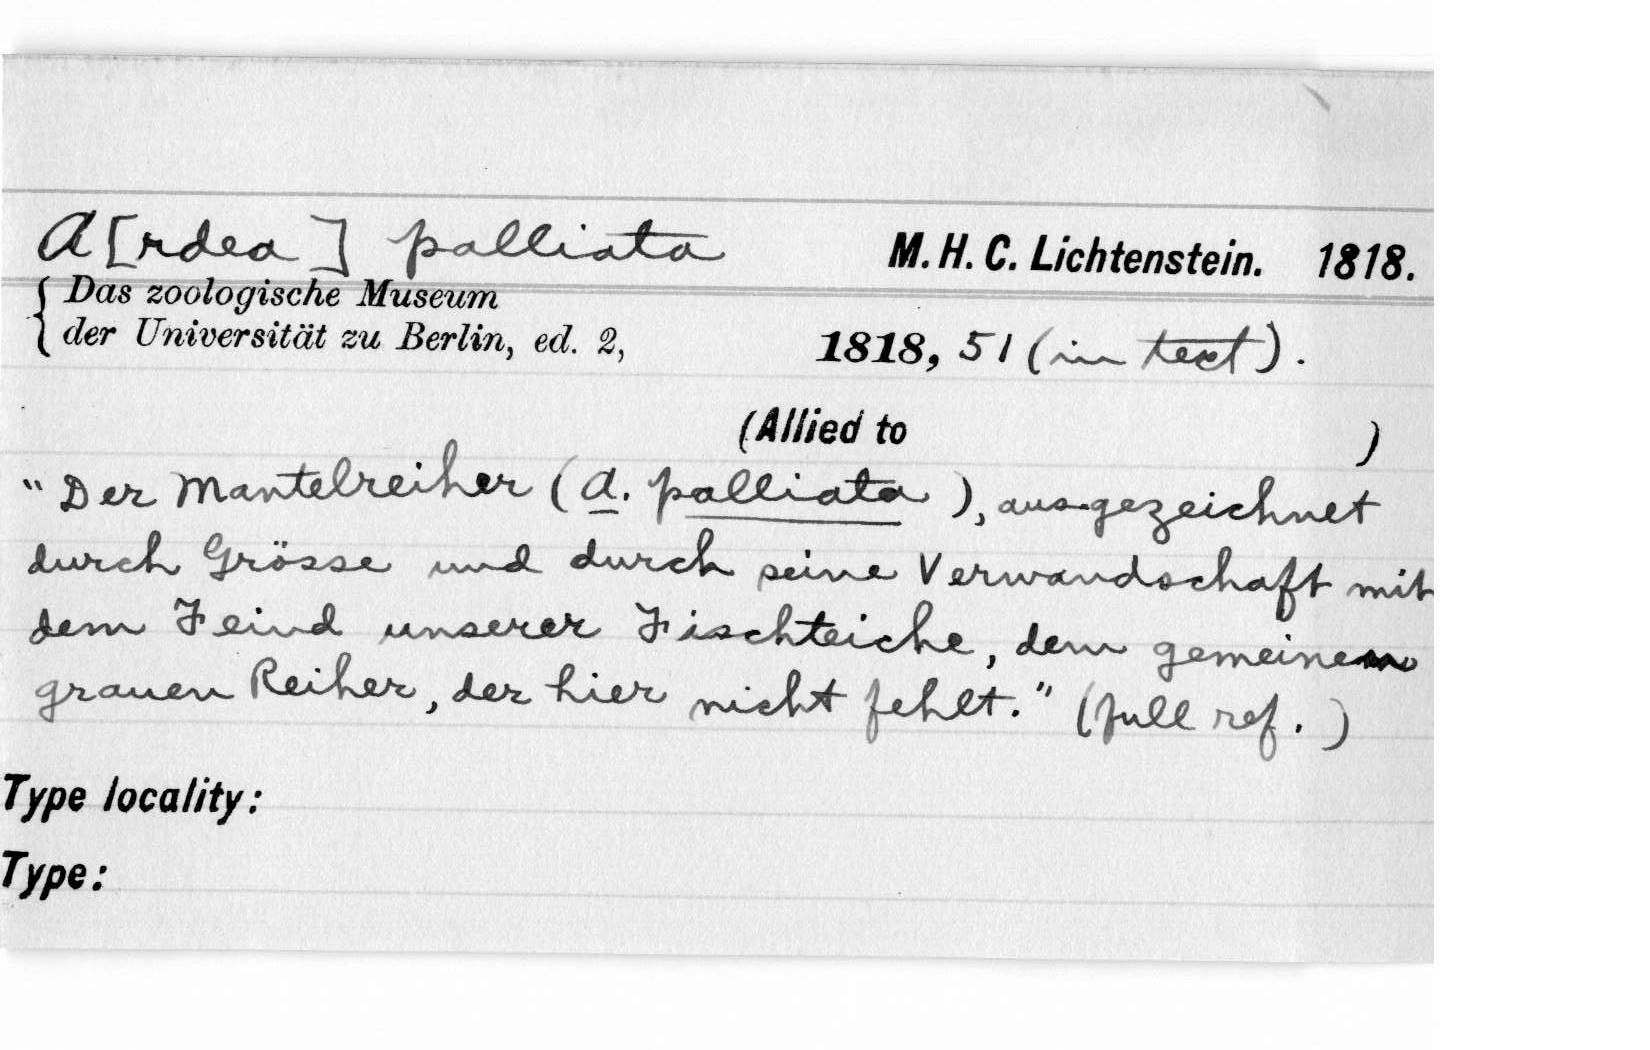 A[rdea] palliata M. H. C. Lichtenstein. 1818.
{ Das zoologische Museum
der Universität zu Berlin, ed. 2, 1818, 51 (in text).
(Allied to )
"Der Mantelreiher (A. palliata), ausgezeichnet
durch Grösse und durch seine Verwandschaft mit
dem Feind unserer Fischteiche, dem gemeinen
grauen Reiher, der hier nicht fehlt." (full ref.)
Type locality:
Type: